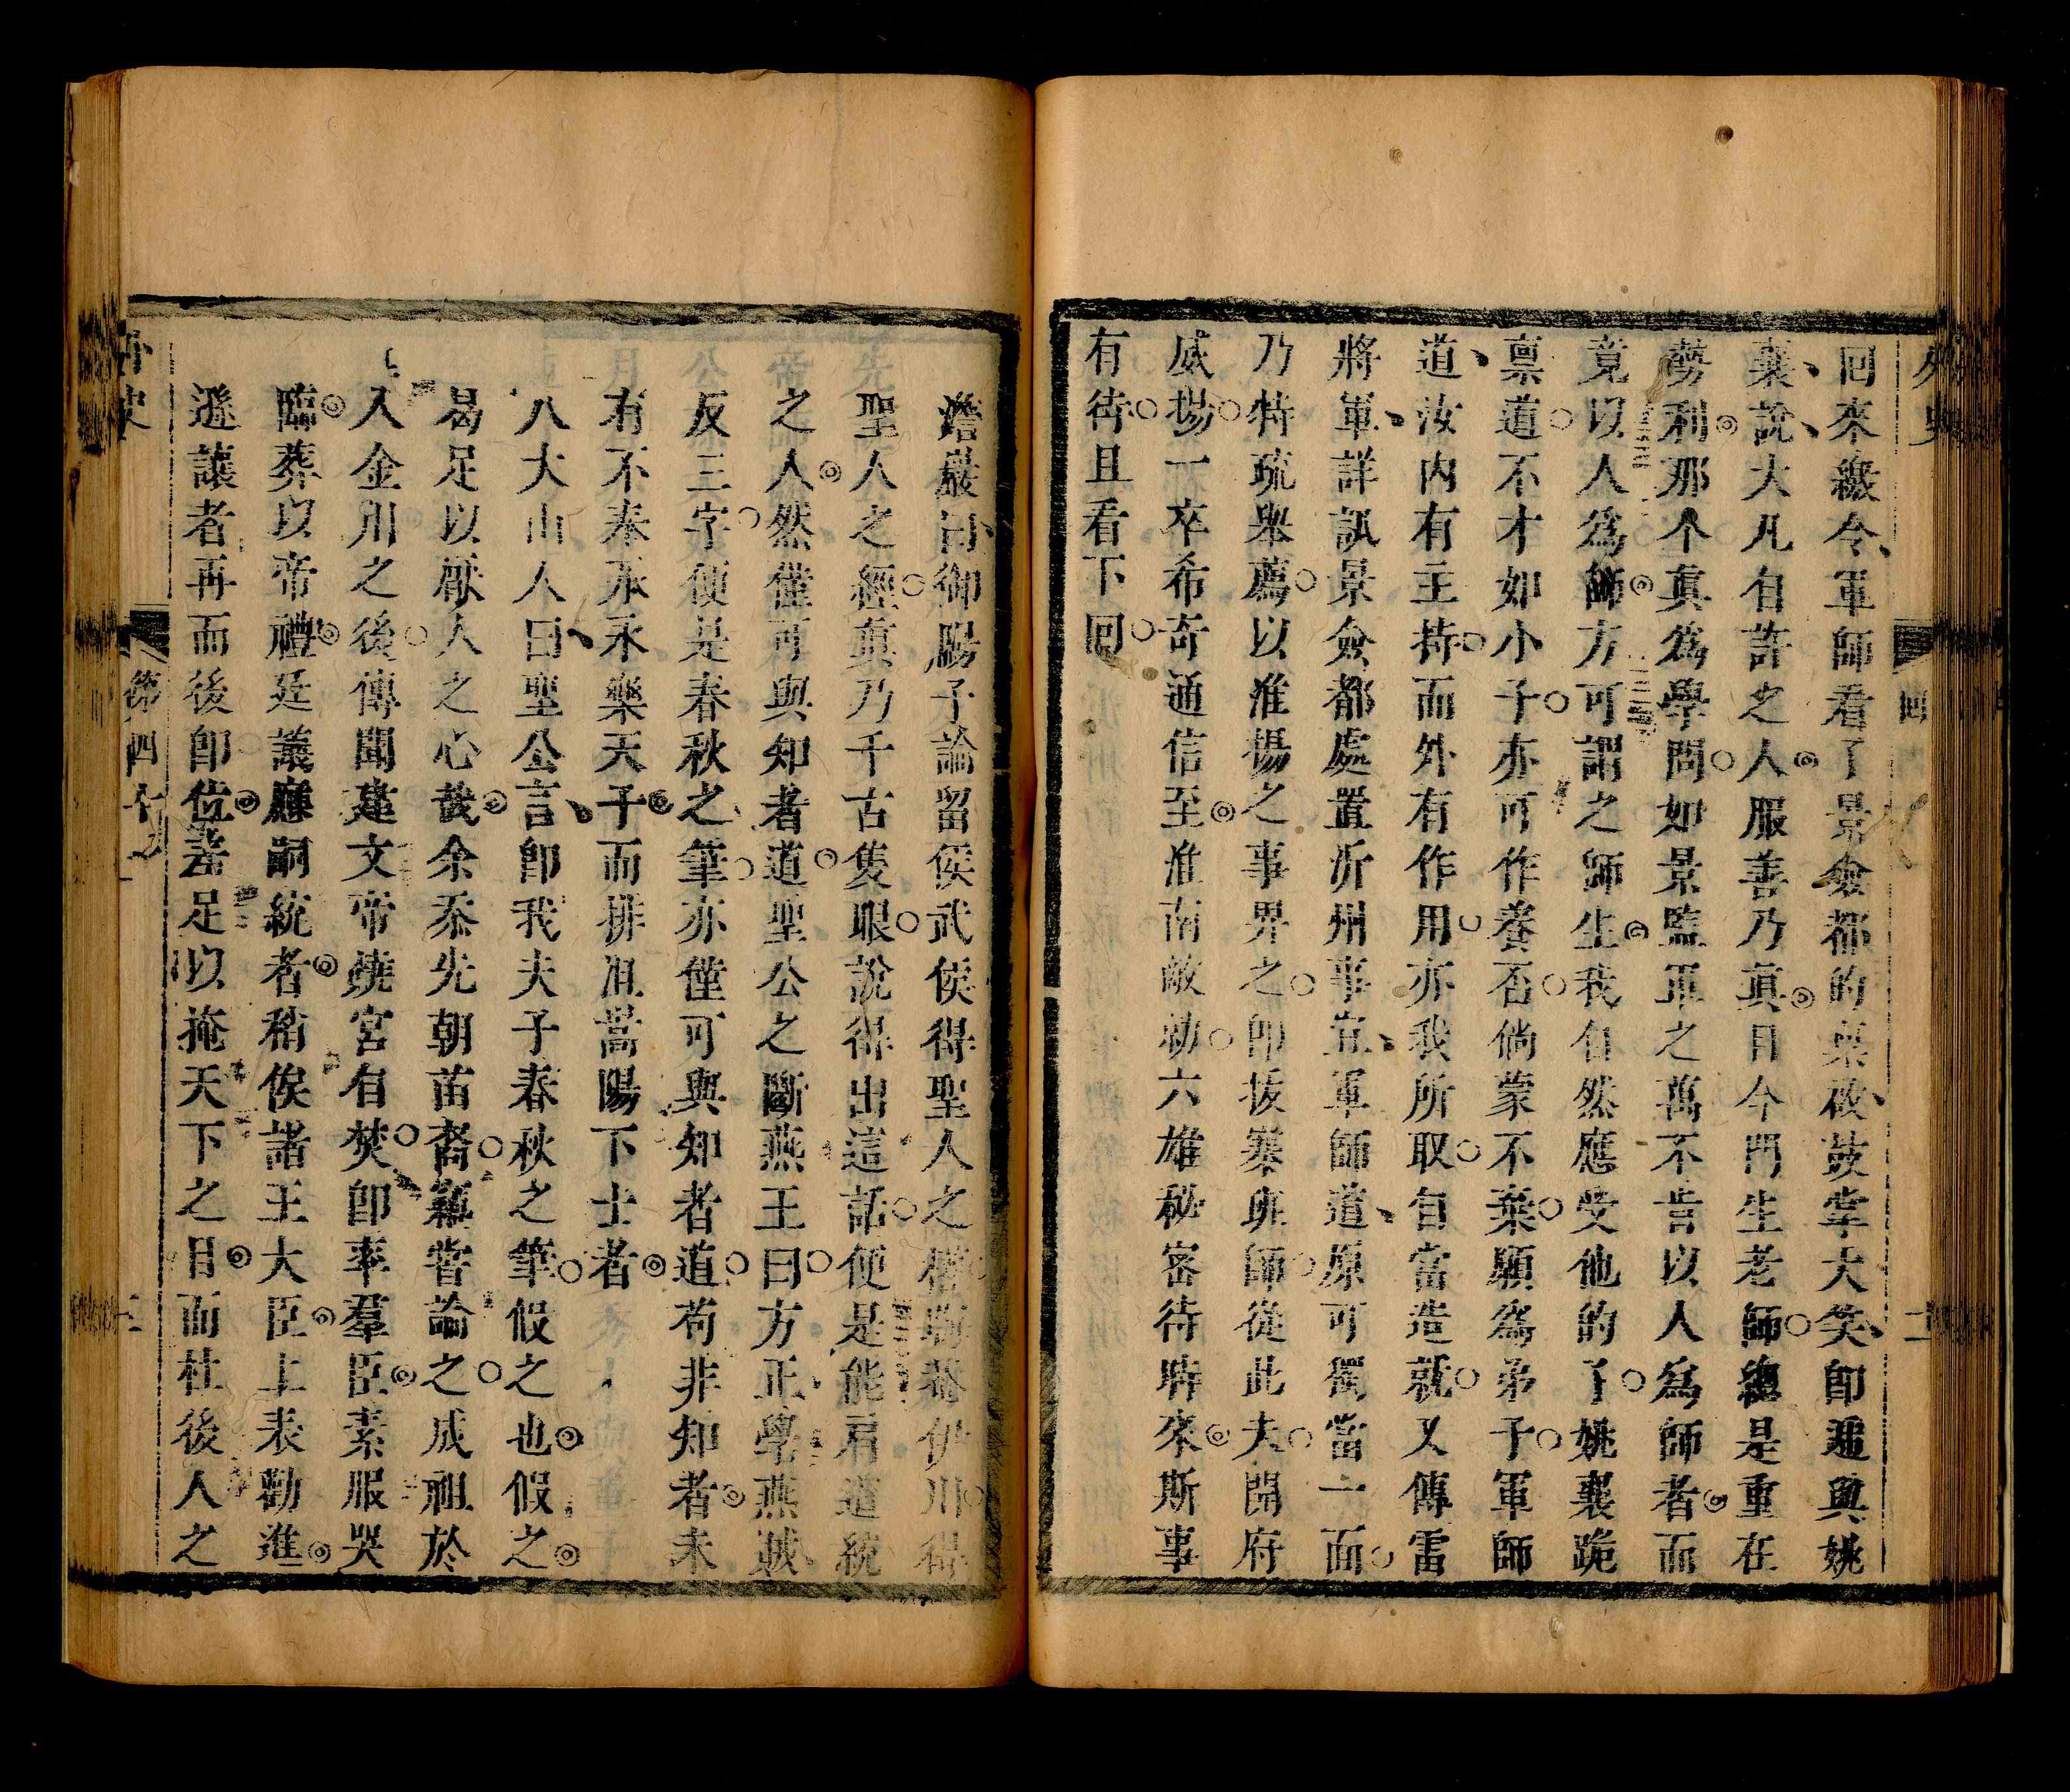 外史
回
二
回來繳令軍師看了景僉都的稟啟鼓掌大笑卽遞與姚
襄說大凡自許之人服善乃眞目今門生老師總是重在
勢利那个眞爲學問如景監軍之萬不肯以人爲師者而
竟以人爲師方可謂之師生我自然應受他的了姚襄跪
禀道不才如小子亦可作養否倘蒙不棄願爲弟子軍師
道汝內有主持而外有作用亦我所取自當造就又傳雷
將軍詳訊景僉都處置沂州事宜軍師道原可獨當一面
乃特疏舉薦以淮揚之事界之卽拔寨班師從此夫開府
威揚一卒希奇通信至淮南敵勍六雄秘密待時來斯事
有待且看下回
澹巖曰御陽子論留侯武侯得聖人之權濂菴伊川得
聖人之經眞乃千古隻眼說得出這話便是能肩道統
之人然僅可與知者道聖公之斷燕王曰方正學燕賊
反三字便是春秋之筆亦僅可與知者道苟非知者未
有不奉永永樂天子而排沮嵩陽下士者
八大山人曰聖公言卽我夫子春秋之筆假之也假之
曷足以厭人之心哉余忝先朝苗裔竊嘗論之成祖於
入金川之後傳聞建文帝燒宮自焚卽率羣臣素服哭
臨葬以帝禮廷議應嗣統者稍俟諸王大臣上表勸進
遜讓者再而後卽位畧足以掩天下之目而杜後人之
外史
第四十
三